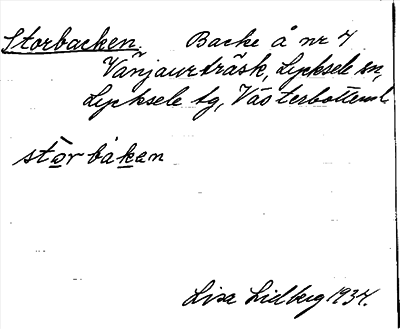 Storbacken. Backe å nr 7
Vänjaurträsk, Lycksele sn,
Lycksele tg, Västerbottens l
stòrbaken
Lisa Lidberg 1934.